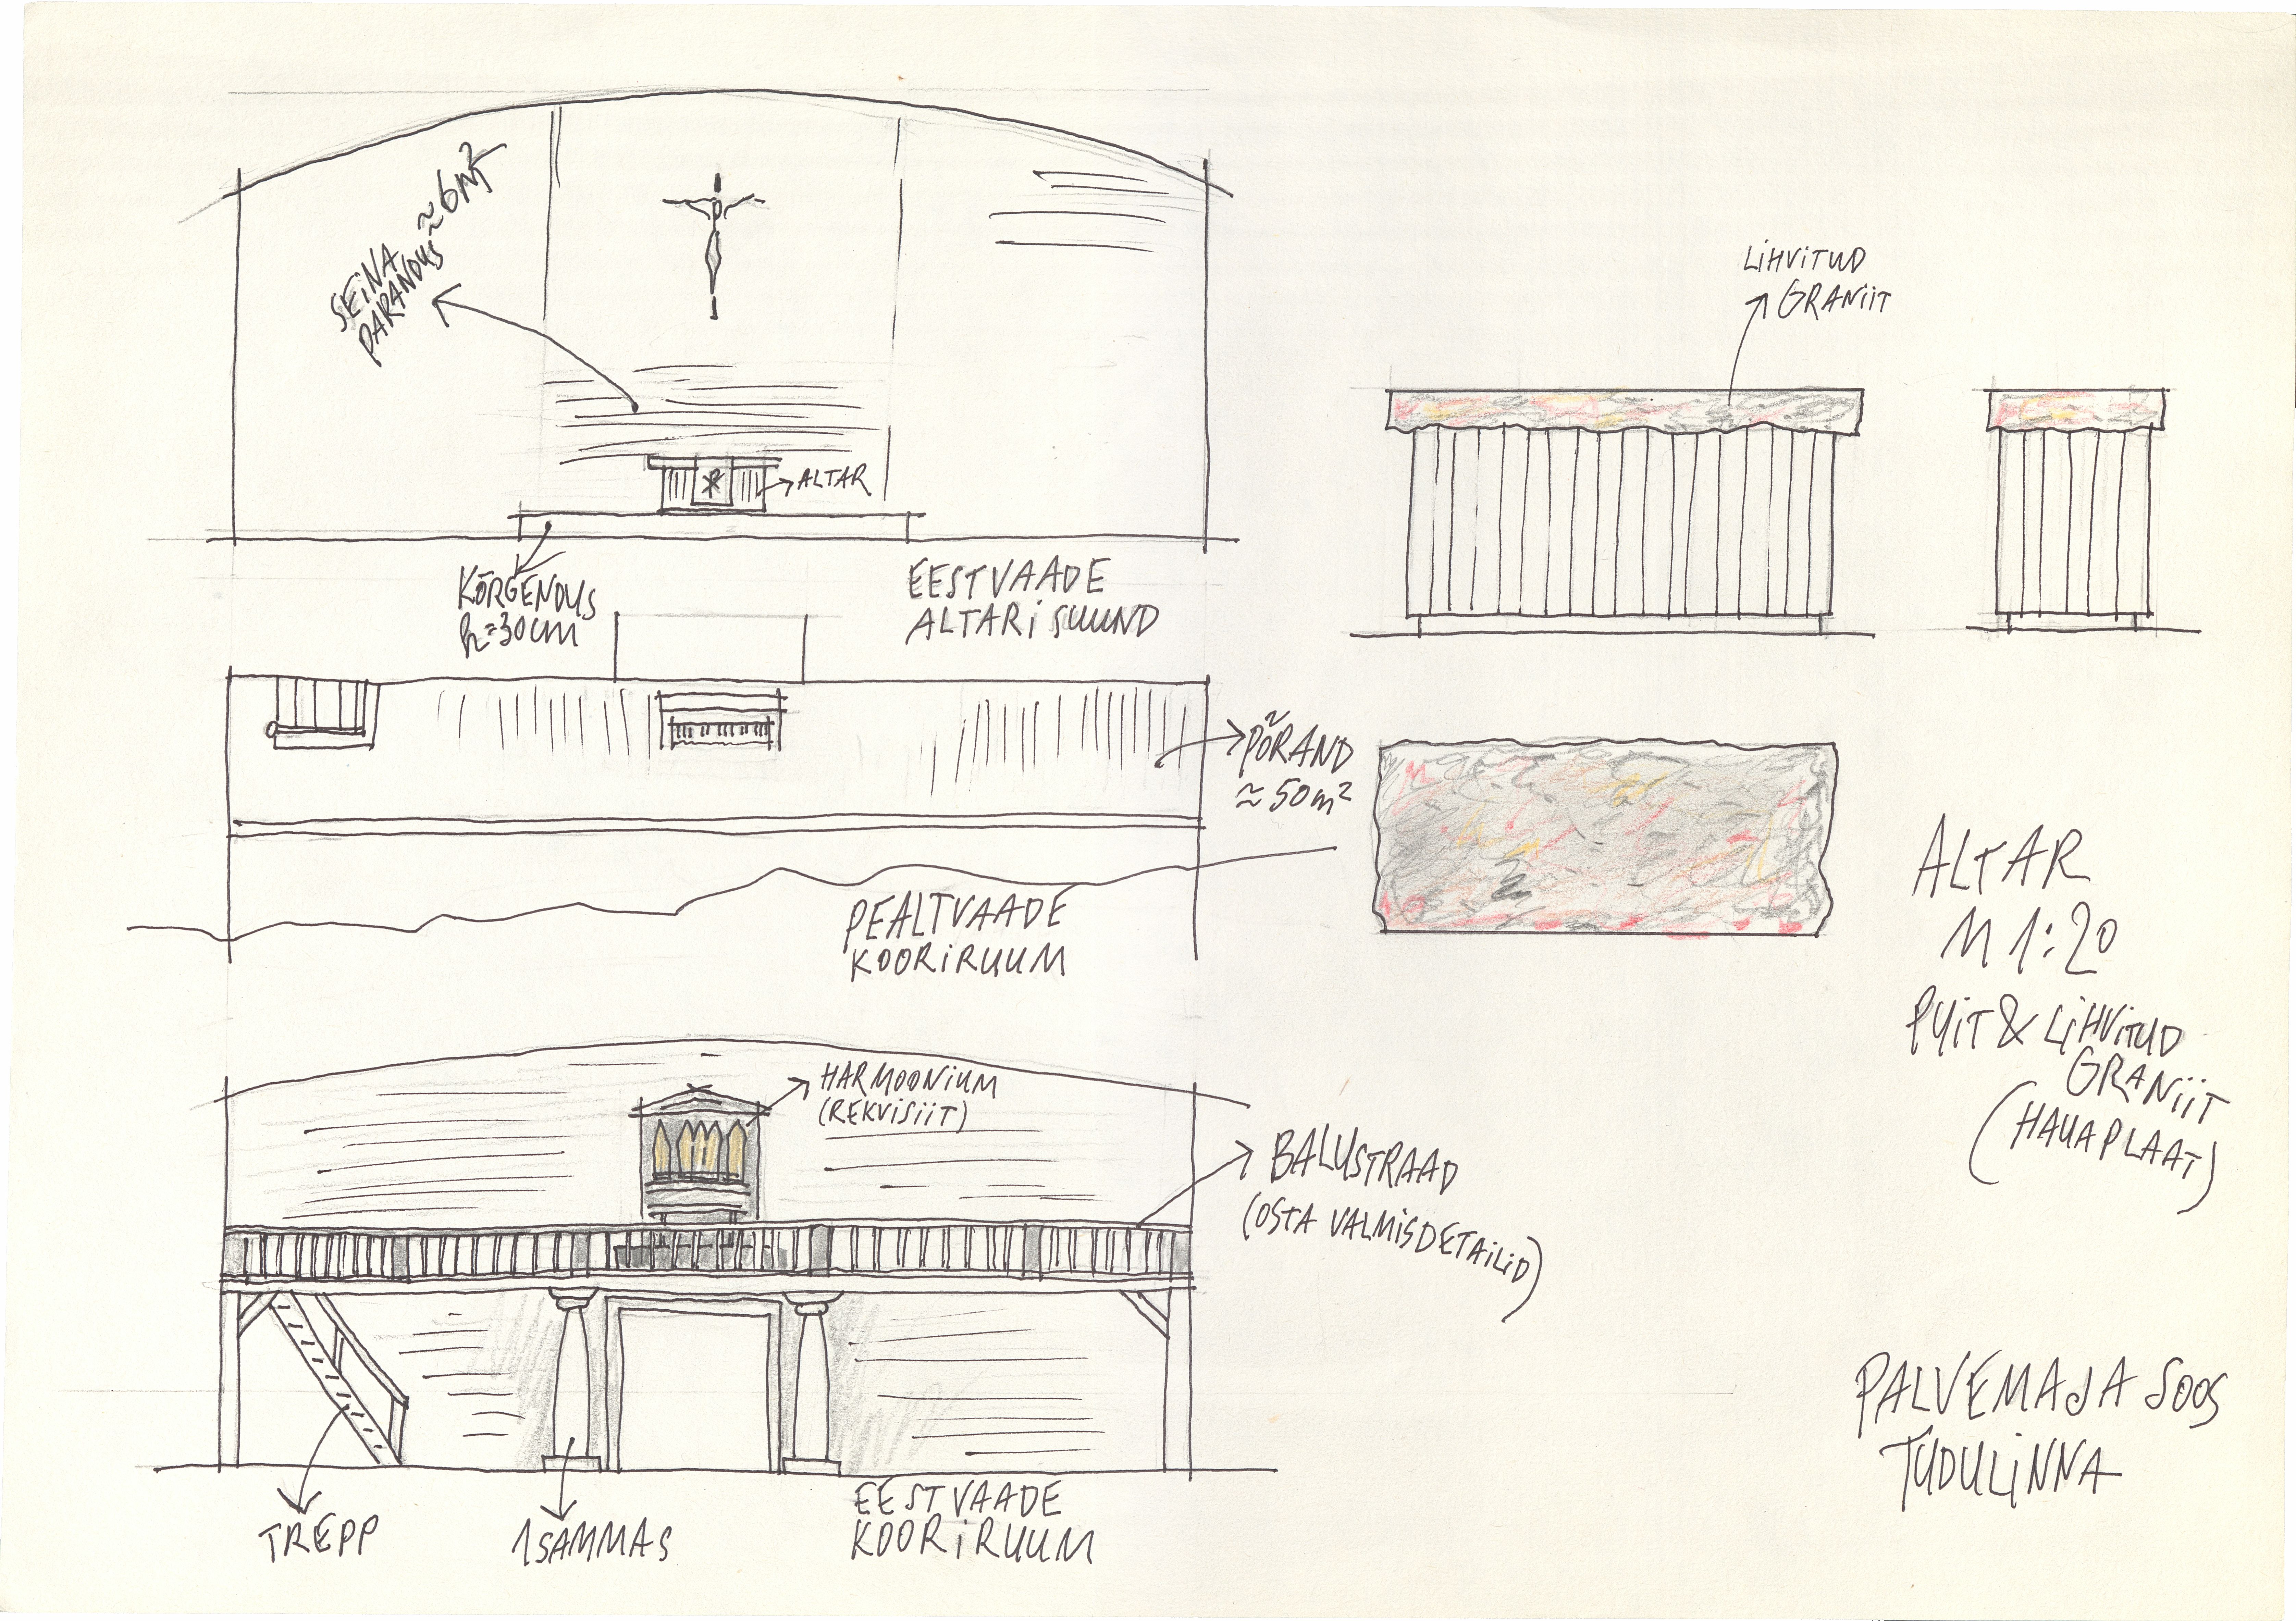 SEINA
PARANDUS ≈6m²
ALTAR
KÕRGENDUS
h=30cm
EESTVAADE
ALTARI SUUND
PÕRAND
≈50m²
PEALTVAADE
KOORIRUUM
HARMOONIUM
(REKVISIIT)
BALUSTRAAD
(OSTA VALMISDETAILID)
TREPP
1SAMMAS
EESTVAADE
KOORIRUUM
LIHVITUD
GRANIIT
ALTAR
M 1:20
PUIT & LIHVITUD
GRANIIT
(HAUAPLAAT)
PALVEMAJA SOOS
TUDULINNA